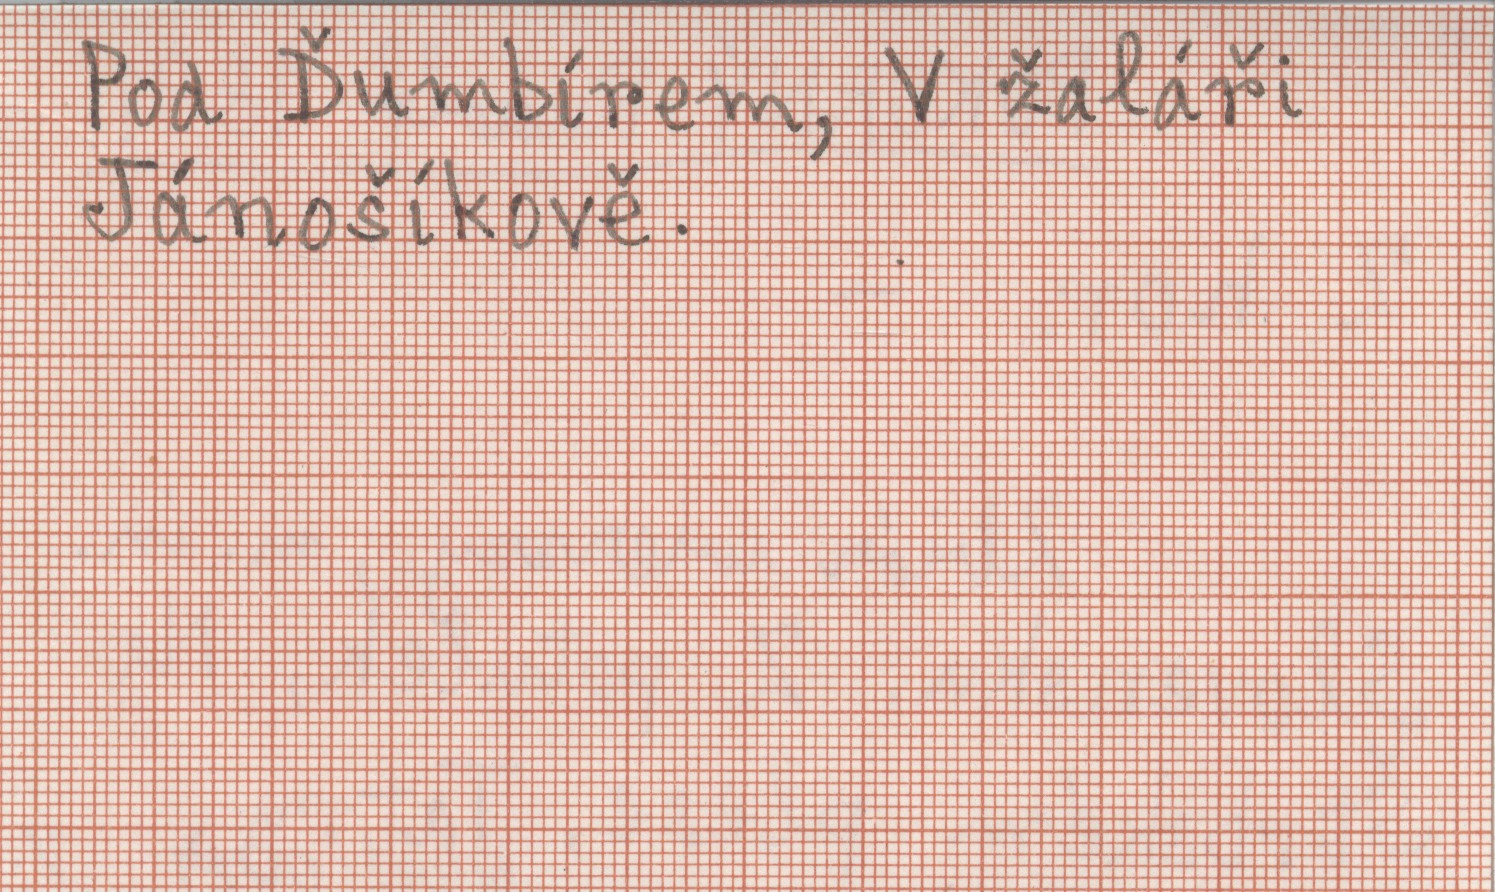 Pod Ďumbírem, V žaláři
Jánošíkově.